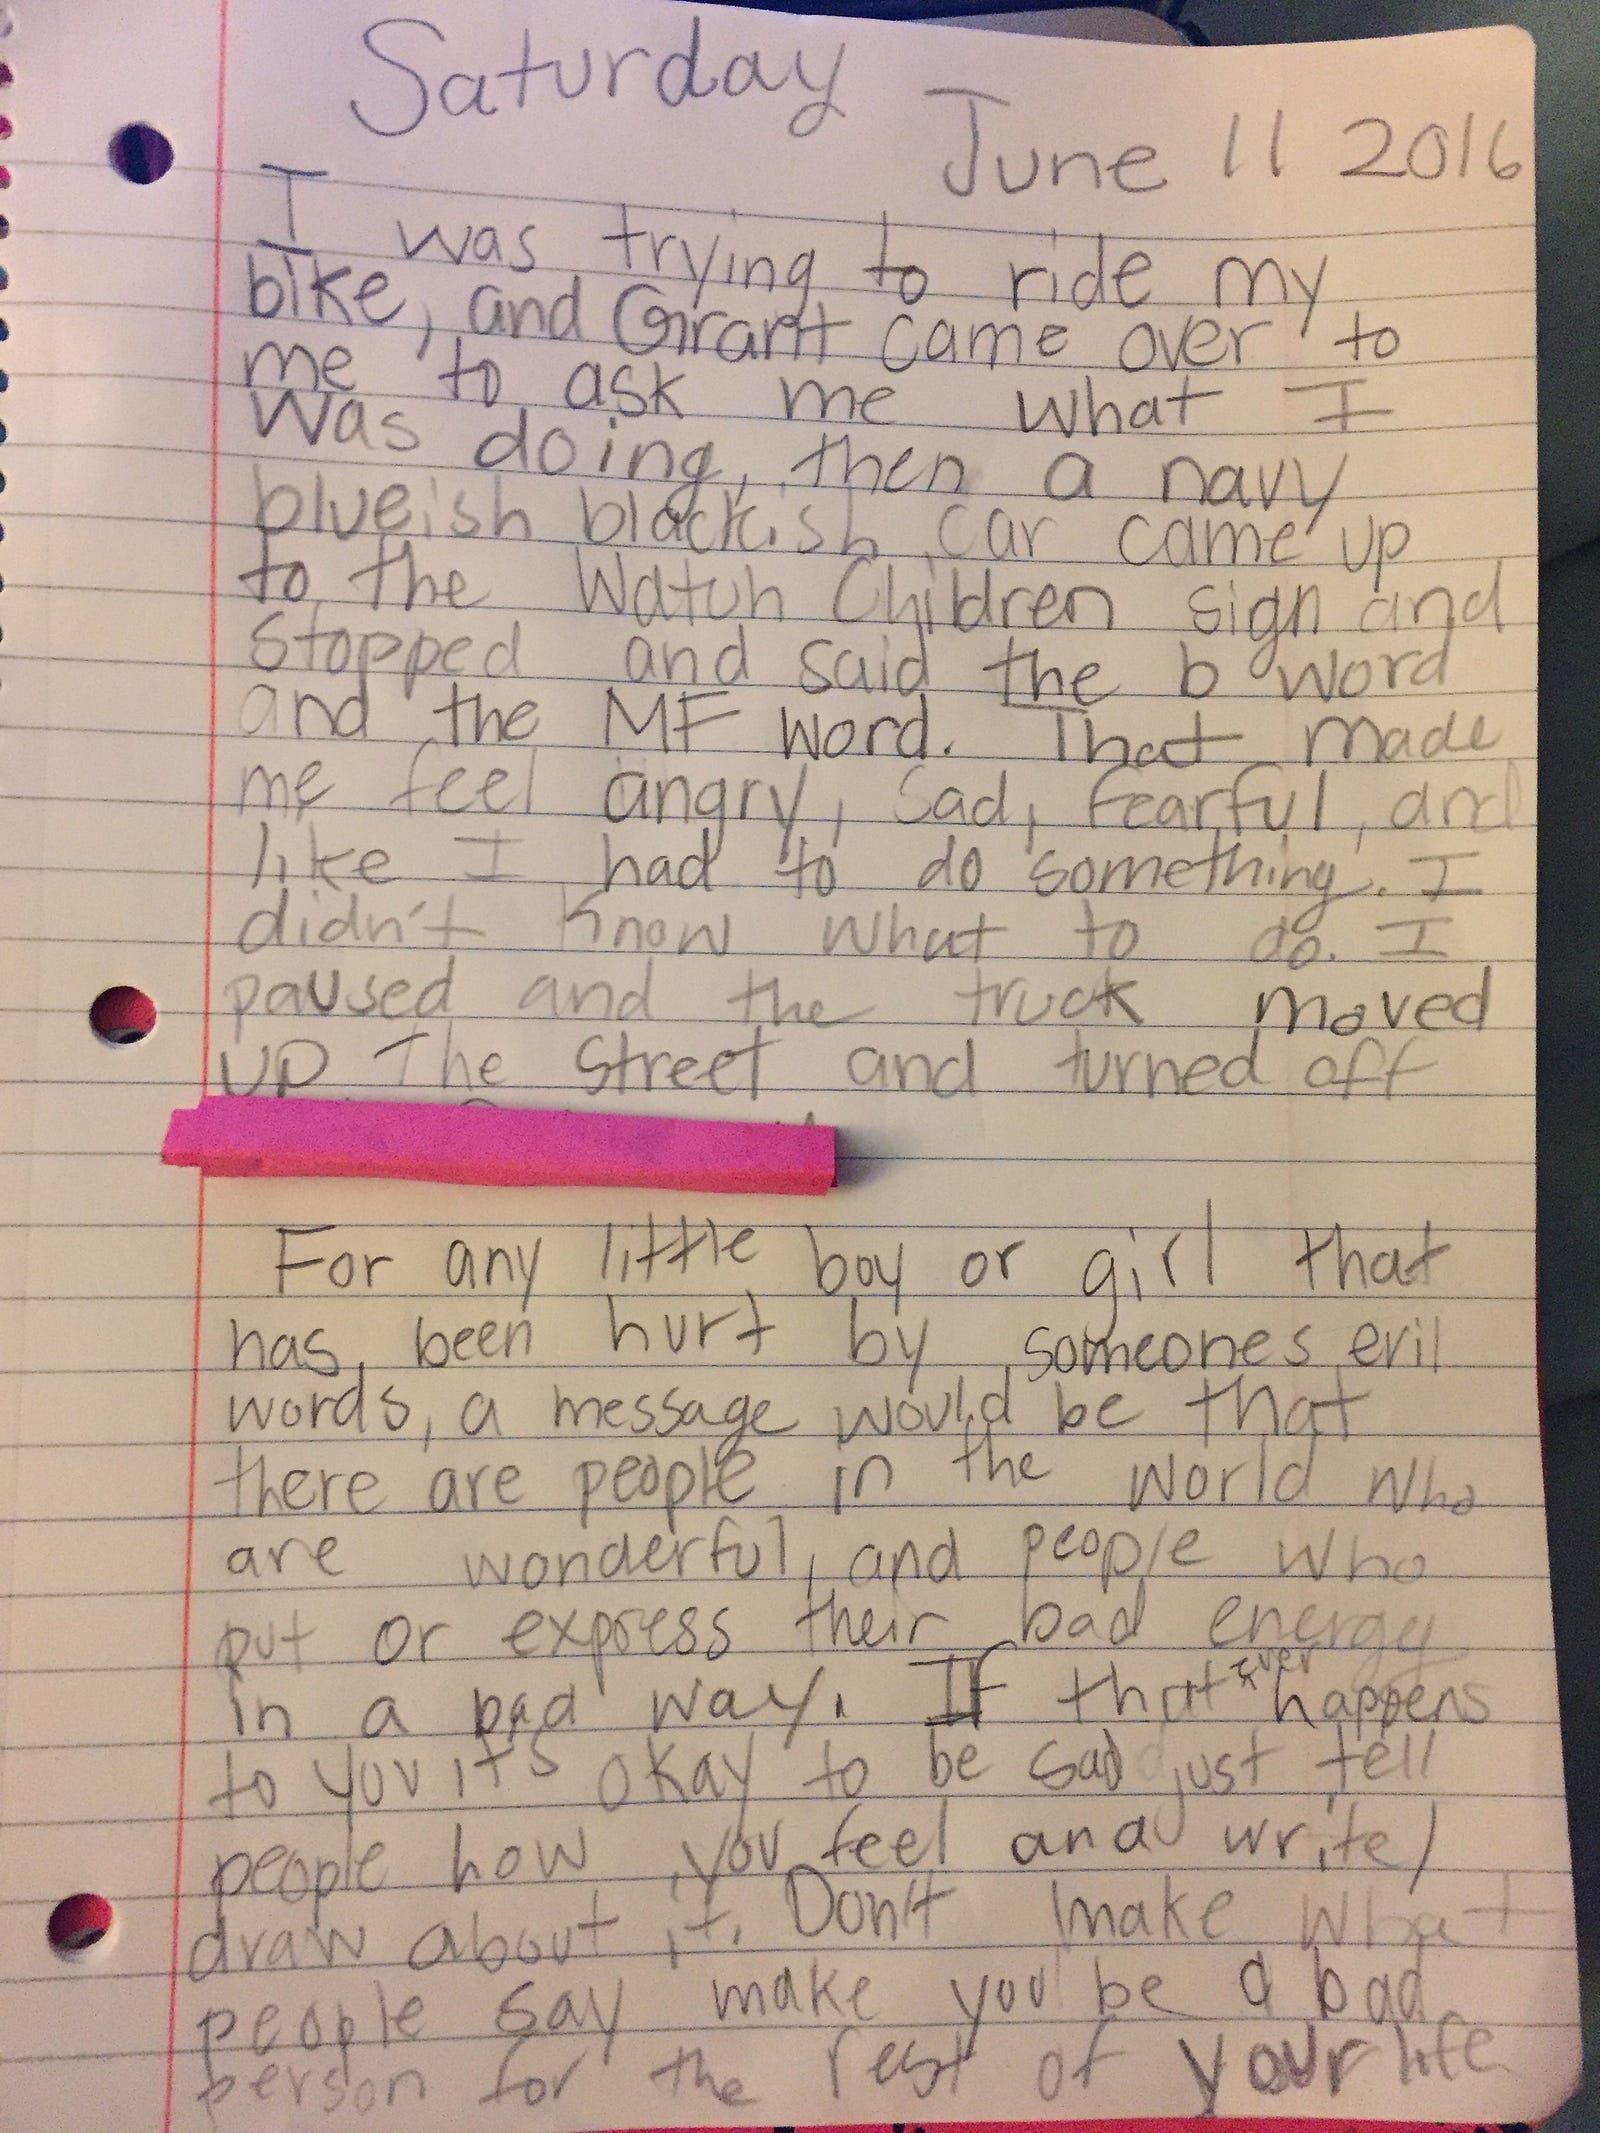 Saturday
June 11 2016
I was trying to ride my
bike, and Grant came over to
me to ask me what I
was doing, then a navy
blueish blackish car came up
to the Watch Children sign and
stopped and said the b word
and the MF word. That made
me feel angry, sad, fearful, and
like I had to do something. I
didn't know what to do. I
paused and the truck moved
up The street and turned off
For any little boy or girl that
has been hurt by someones evil
words, a message would be that
there are people in the world who
are wonderful, and people who
put or express their bad energy
in a bad way. If that ever happens
to you it's okay to be sad just tell
people how you feel and write/
draw about it. Don't make what
people say make you be a bad
person for the rest of your life